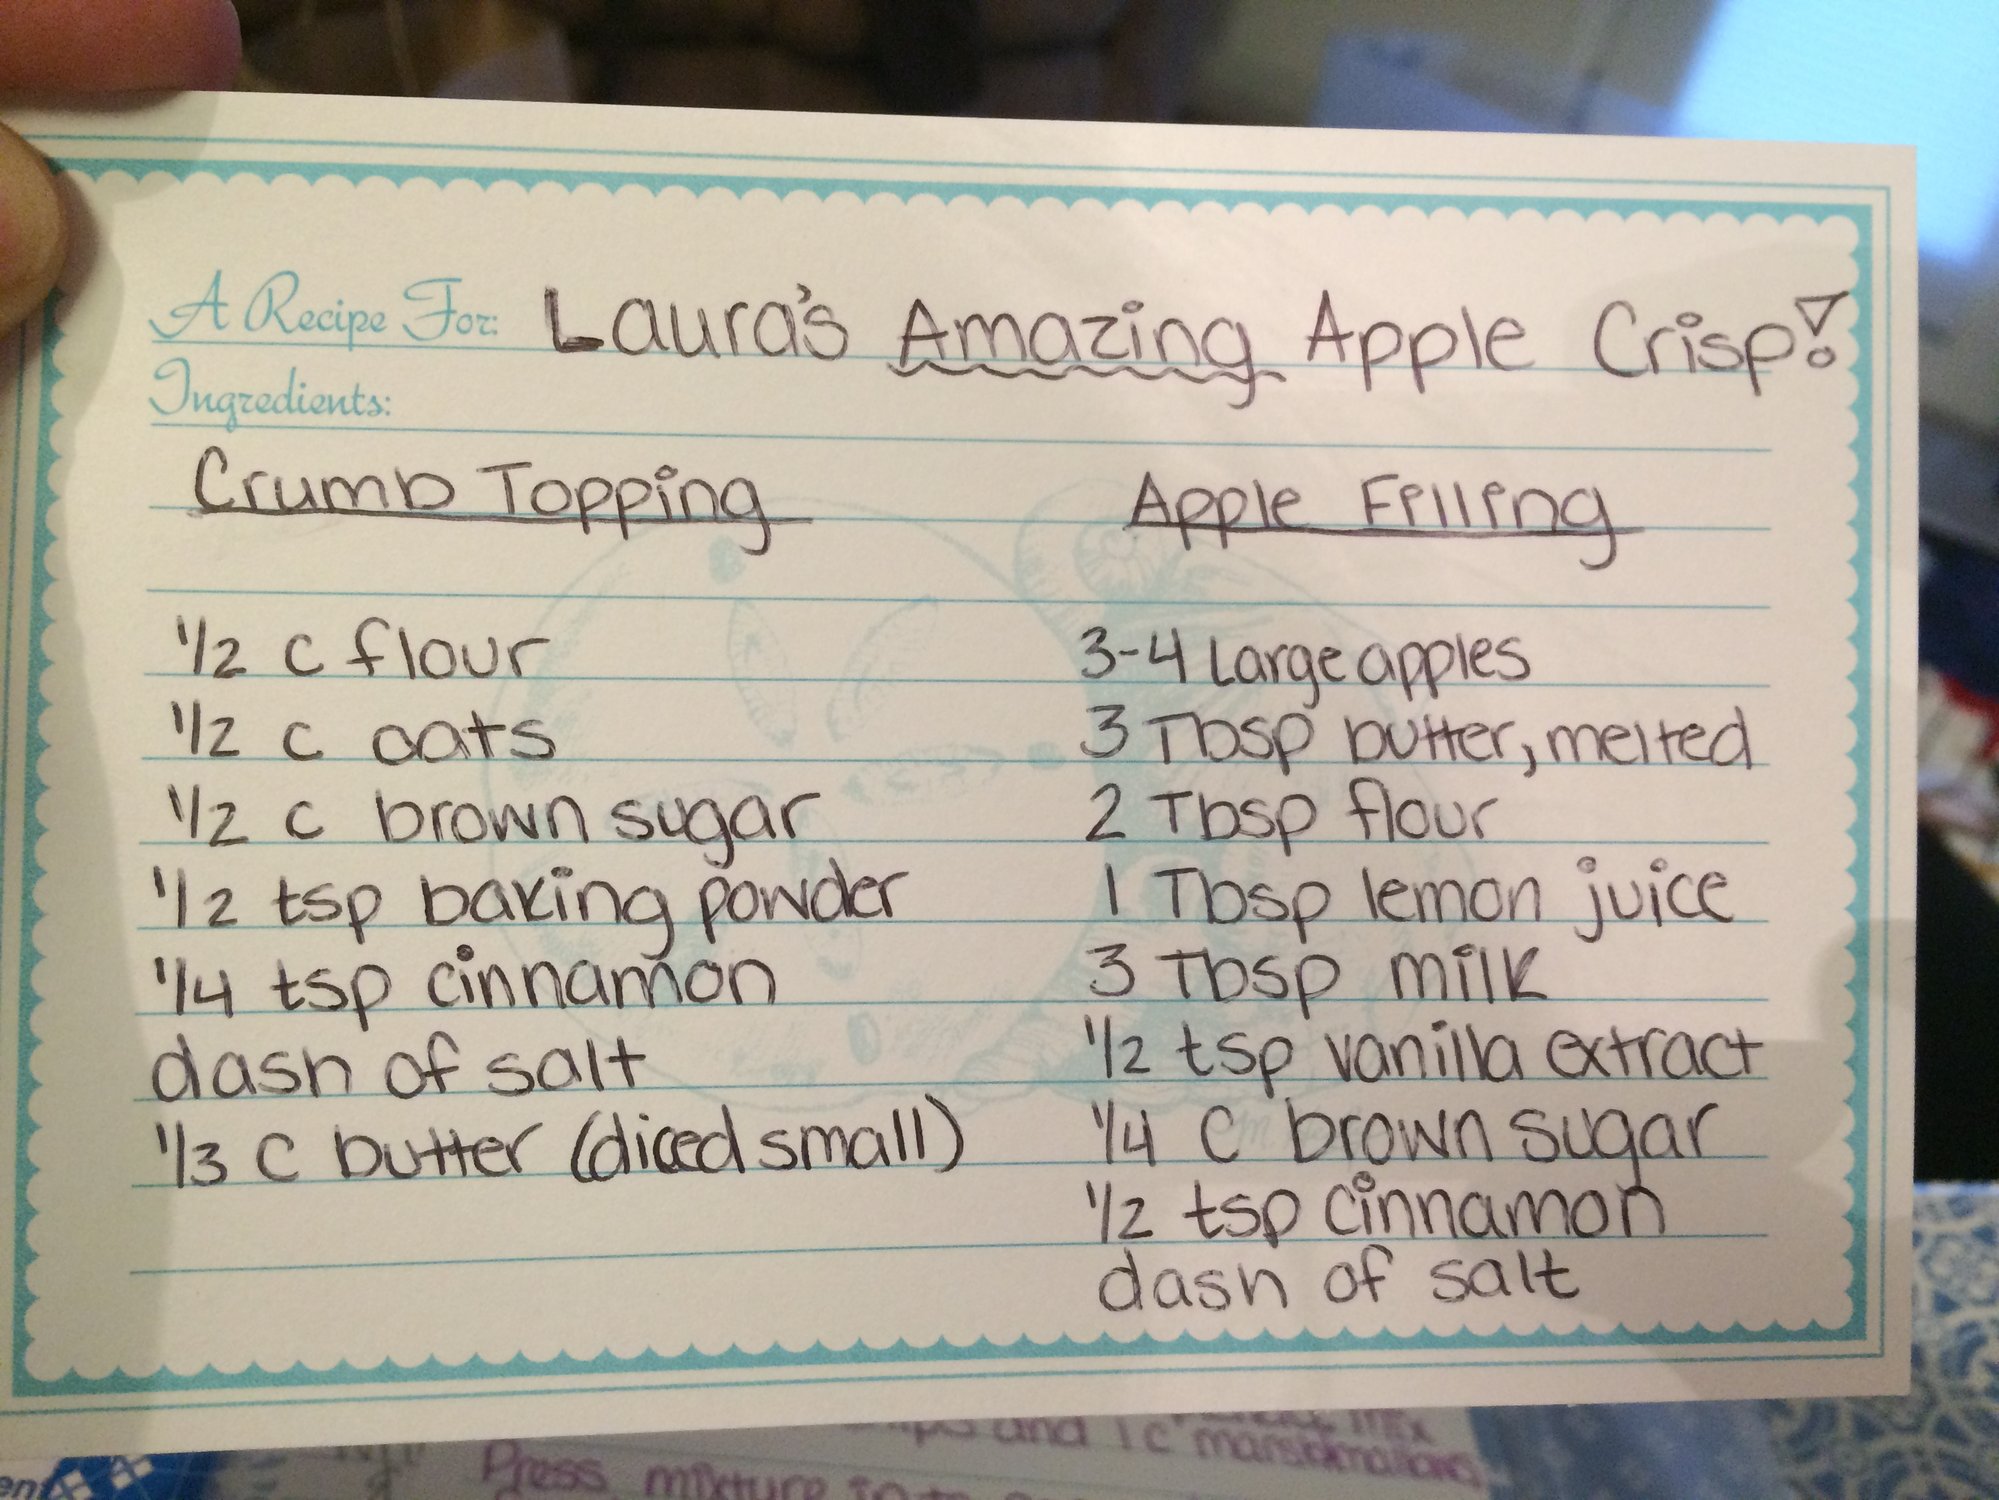 A Recipe For: Laura's Amazing Apple Crisp!
Ingredients:
Crumb Topping
1/2 c flour
1/2 c oats
1/2 c brown sugar
1/2 tsp baking powder
1/4 tsp cinnamon
dash of salt
1/3 c butter (diced small)
Apple Filling
3-4 Large apples
3 Tbsp butter, melted
2 Tbsp flour
1 Tbsp lemon juice
3 Tbsp milk
1/2 tsp vanilla extract
1/4 c brown sugar
1/2 tsp cinnamon
dash of salt
and 1 c marshmallows
Press mixture